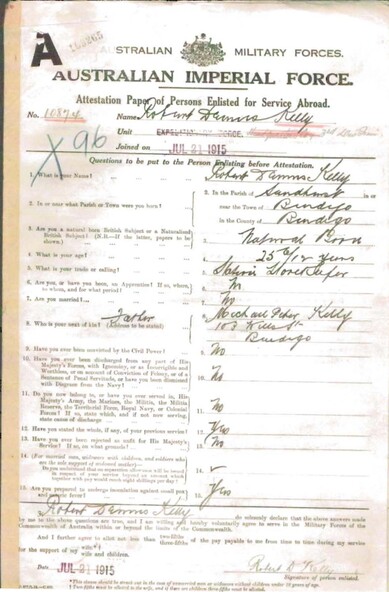 A
AUSTRALIAN MILITARY FORCES.
AUSTRALIAN IMPERIAL FORCE.
Attestation Paper of Persons Enlisted for Service Abroad.
No. 10874 Name Robert Dennis Kelly
X96 Unit
Joined on JUL 21 1915
Questions to be put to the Person Enlisting before Attestation.
1. What is your Name? 1. Robert Dennis Kelly
2. In or near what Parish or Town were you born? 2. In the Parish of Sandhurst in or
near the Town of Bendigo
in the County of Bendigo
3. Are you a natural born British Subject or a Naturalized
British Subject? (N.B.—If the latter, papers to be
shown.) 3. Natural Born
4. What is your age? 4. 25 years
5. What is your trade or calling? 5. Storekeeper
6. Are you, or have you been, an Apprentice? If so, where,
to whom, and for what period? 6.
7. Are you married? 7.
8. Who is your next of kin? (Address to be stated) Father 8. Michael Peter Kelly
Wills St
Bendigo
9. Have you ever been convicted by the Civil Power? 9. No
10. Have you ever been discharged from any part of His
Majesty's Forces, with Ignominy, or as Incorrigible and
Worthless, or on account of Conviction of Felony, or of a
Sentence of Penal Servitude, or have you been dismissed
with Disgrace from the Navy? 10. No
11. Do you now belong to, or have you ever served in, His
Majesty's Army, the Marines, the Militia, the Militia
Reserve, the Territorial Force, Royal Navy, or Colonial
Forces? If so, state which, and if not now serving,
state cause of discharge 11. No
12. Have you stated the whole, if any, of your previous service? 12. Yes
13. Have you ever been rejected as unfit for His Majesty's
Service? If so, on what grounds? 13. No
14. (For married men, widowers with children, and soldiers who
are the sole support of widowed mother)—
Do you understand that no separation allowance will be issued
in respect of your service beyond an amount which
together with pay would reach eight shillings per day? 14.
15. Are you prepared to undergo inoculation against small pox
and enteric fever? 15. Yes
I, Robert Dennis Kelly do solemnly declare that the above answers made
by me to the above questions are true, and I am willing and hereby voluntarily agree to serve in the Military Forces of the
Commonwealth of Australia within or beyond the limits of the Commonwealth.
And I further agree to allot not less than two-fifths three-fifths of the pay payable to me from time to time during my service
for the support of my wife wife and children.
Date JUL 21 1915 Robert D Kelly
Signature of person enlisted.